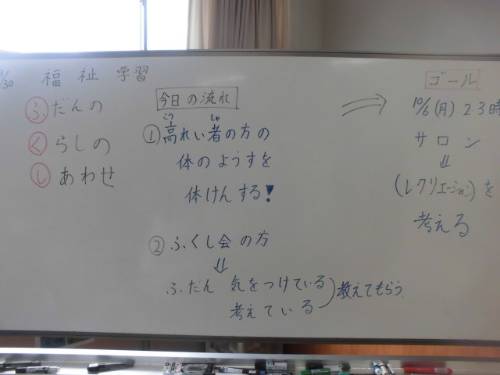 /30 福祉学習
ふだんの
くらしの
しあわせ
今日の流れ
こう しゃ
①高れい者の方の
体のようすを
体けんする!
②ふくし会の方
⇓
ふだん 気をつけている
考えている
教えてもらう
ゴール
10/6(月)23時
サロン
⇓
(レクリエーション)を
考える